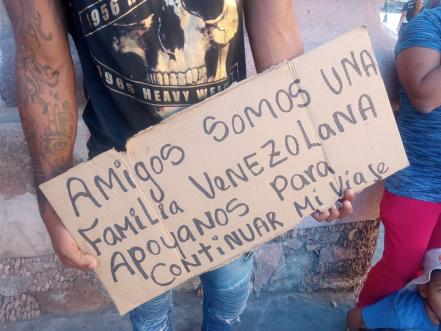 1956
1965 HEAVY WEI
AMIGOS SOMOS UNA
FamiLia VENEZOLANA
APOYANOS PaRa
CONTiNUAR Mi Viaje